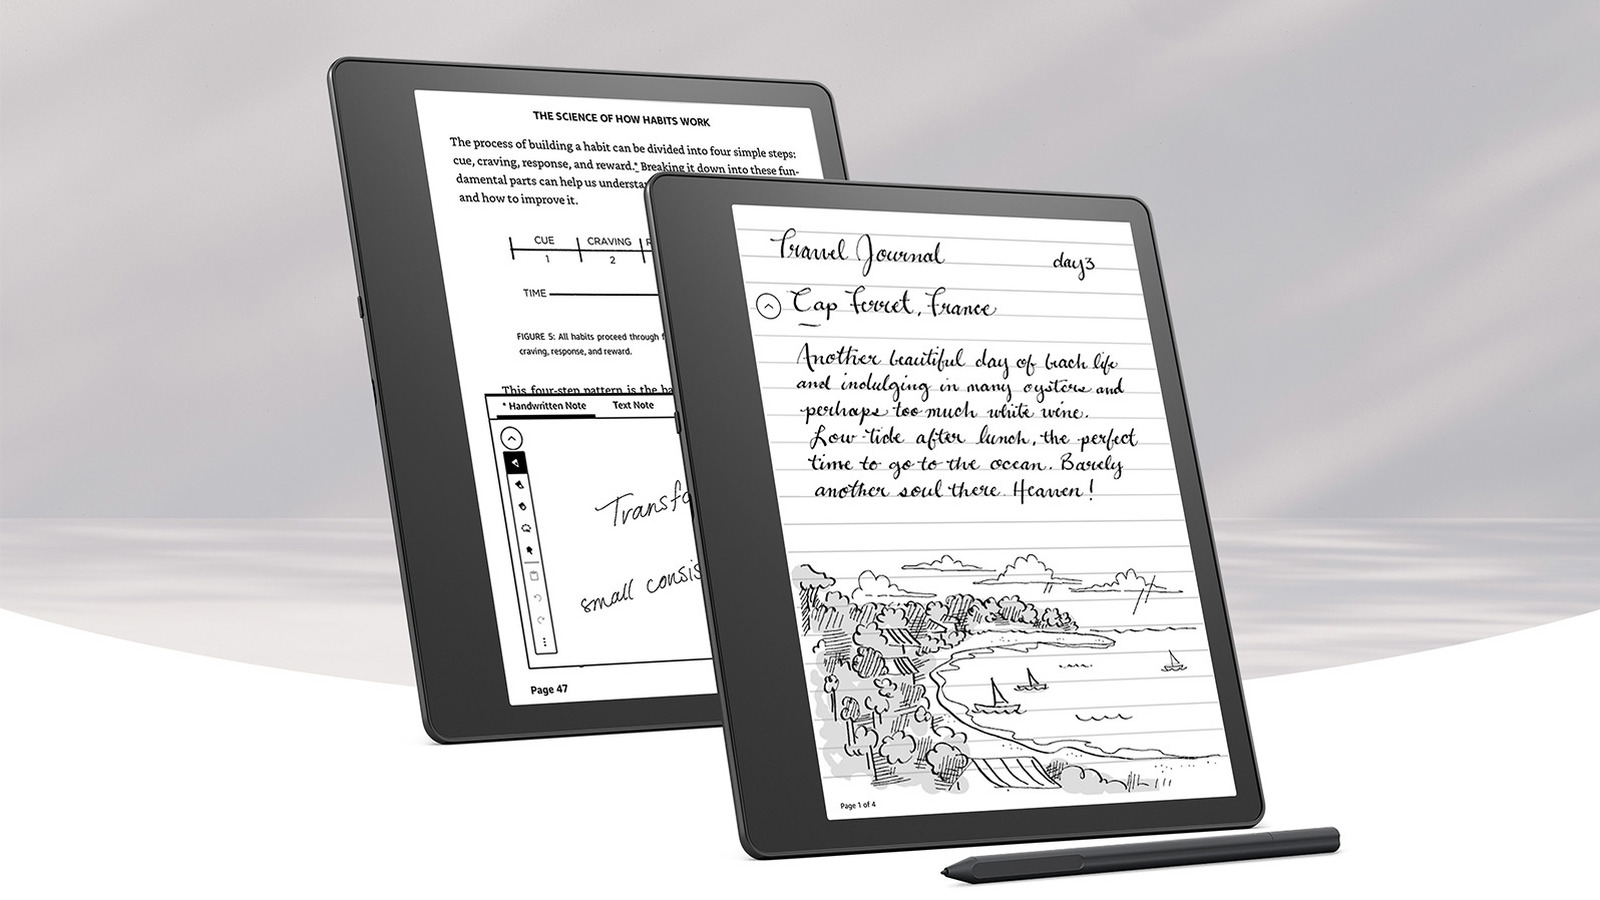 THE SCIENCE OF HOW HABITS WORK
The process of building a habit can be divided into four simple steps:
cue, craving, response, and reward.* Breaking it down into these fun-
damental parts can help us
and how to improve it.
CUE CRAVING
1 2
TIME
FIGURE 5: All habits proceed through
craving, response, and reward.
This four-step pattern is the
* Handwritten Note Text Note
small
Page 47
Travel Journal day 3
Cap Ferret, France
Another beautiful day of beach life
and indulging in many oysters and
perhaps too much white wine.
Low tide after lunch, the perfect
time to go to the ocean. Barely
another soul there. Heaven!
Page 1 of 4